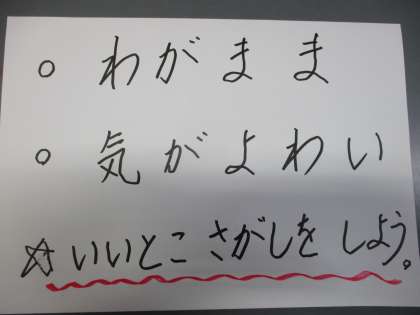 ○ わがまま
○ 気がよわい
☆ いいとこさがしをしよう。